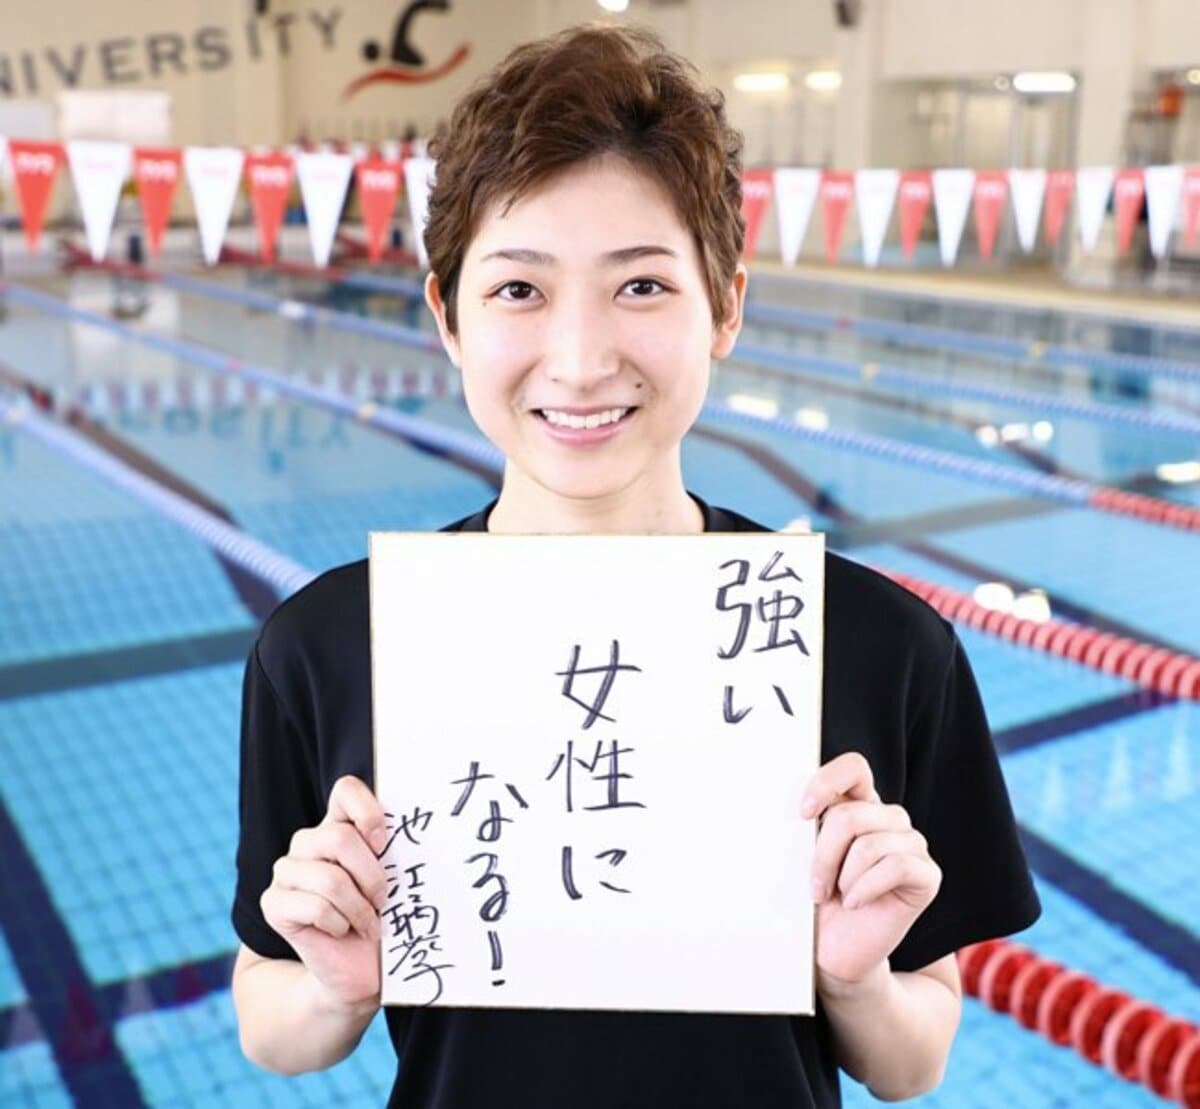 NIVERSITY
強い
女性に
なる!
池江璃花子